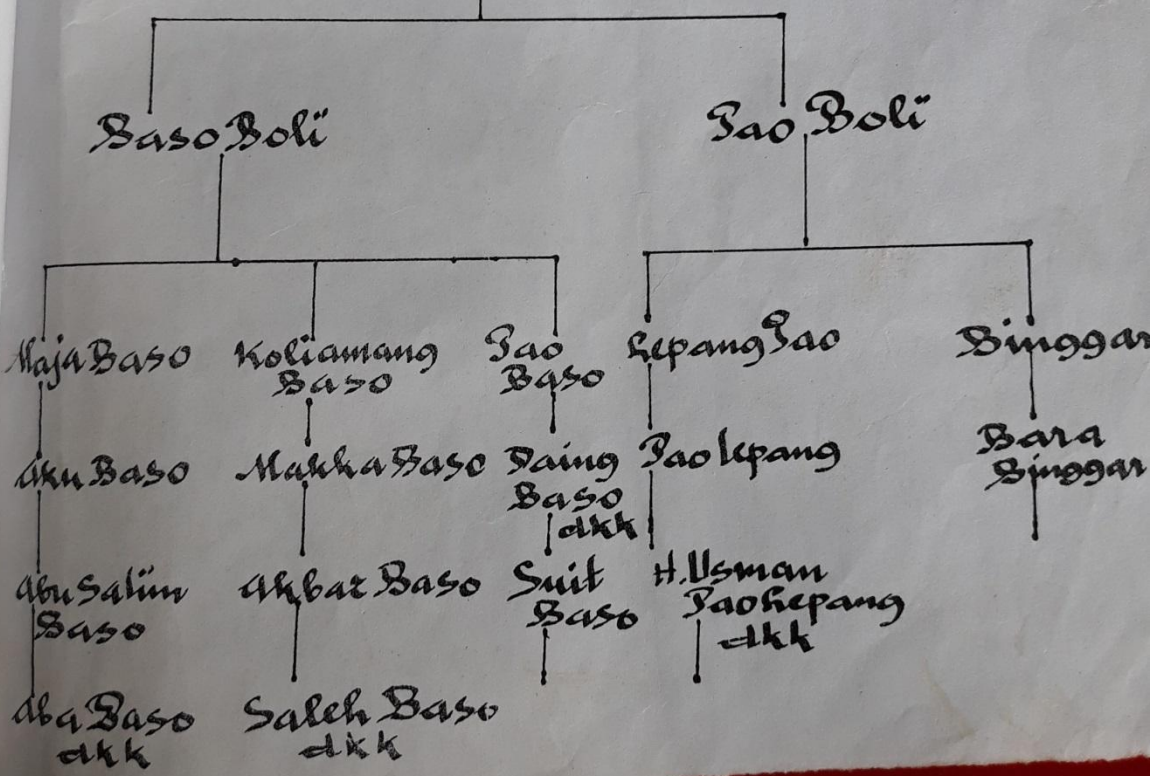 Baso Boli
Pao Boli
Maja Baso
Koliamang
Baso
Pao
Baso
Lepang Pao
Binggar
Aku Baso
Makka Baso
Daing
Baso
dkk
Pao Lepang
Bara
Binggar
Abu Salim
Baso
Akbar Baso
Suit
Baso
H. Usman
Pao Lepang
dkk
Aba Baso
dkk
Saleh Baso
dkk